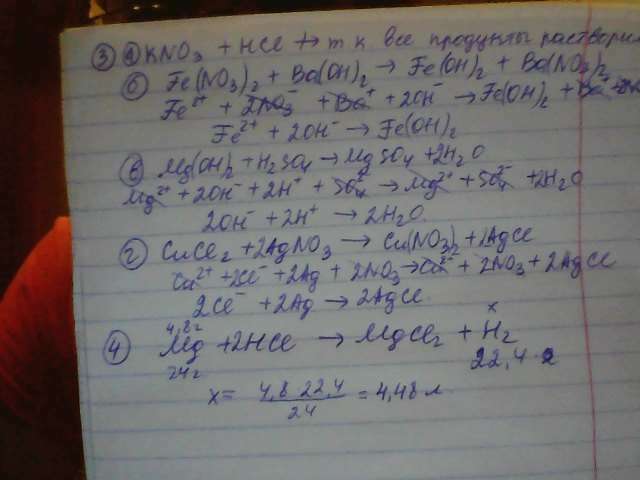 ③ а KNO₃ + HCl ↛ т к все продукты раствори
б Fe(NO₃)₂ + Ba(OH)₂ → Fe(OH)₂ + Ba(NO₃)₂
Fe²⁺ + 2NO₃⁻ + Ba⁺ + 2OH⁻ → Fe(OH)₂ + Ba²⁺
Fe²⁺ + 2OH⁻ → Fe(OH)₂
в Mg(OH)₂ + H₂SO₄ → MgSO₄ + 2H₂O
Mg²⁺ + 2OH⁻ + 2H⁺ + SO₄²⁻ → Mg²⁺ + SO₄²⁻ + 2H₂O
2OH⁻ + 2H⁺ → 2H₂O
г CuCl₂ + 2AgNO₃ → Cu(NO₃)₂ + 2AgCl
Cu²⁺ + 2Cl⁻ + 2Ag + 2NO₃ → Cu²⁺ + 2NO₃ + 2AgCl
2Cl⁻ + 2Ag → 2AgCl
4,8г x
④ Mg + 2HCl → MgCl₂ + H₂
24г 22,4 л
x = 4,8 22,4 / 24 = 4,48 л